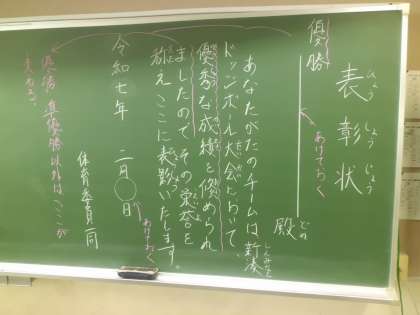 表彰状
ひょうしょうじょう
優勝
あけておく
殿
どの
あなたがたのチームは新湊
しんみなと
ドッジボール大会において、
優秀な成績を修められ
ましたので その栄誉を
称え ここに表彰いたします。
令和七年 二月〇日
あけておく
体育委員一同
優勝、準優勝以外は ここが